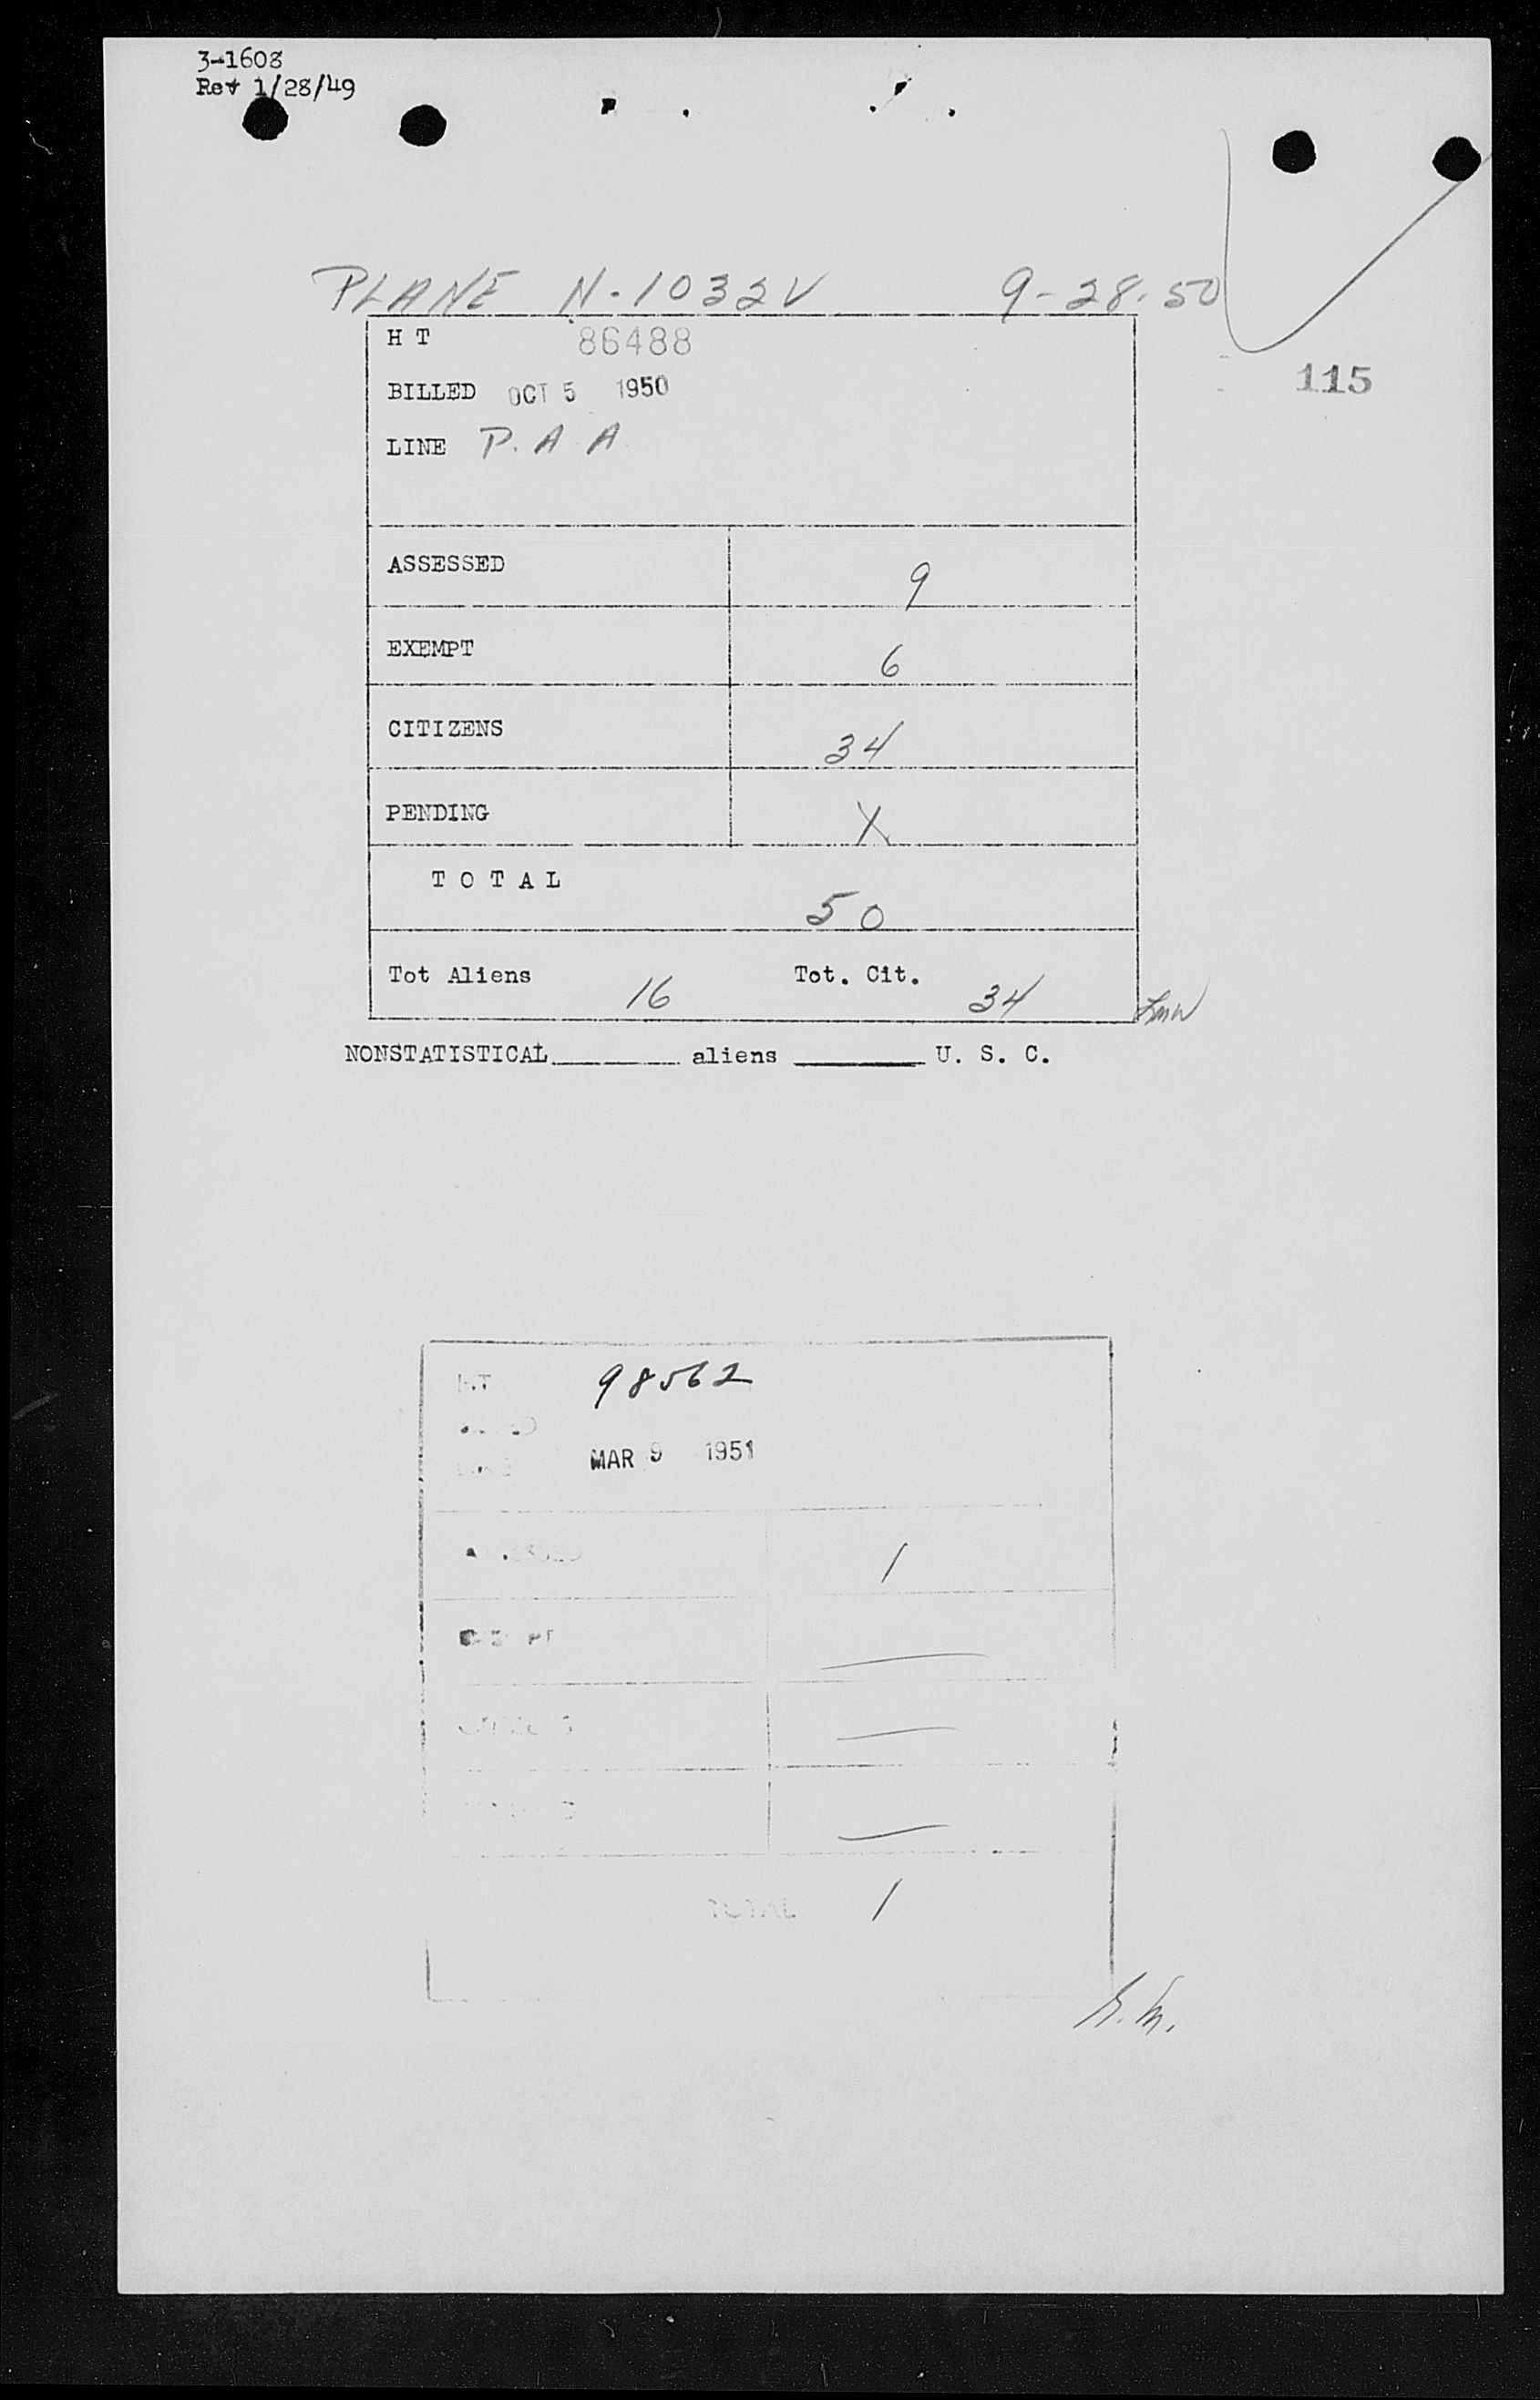 3-1608
Rev 1/28/49
PLANE N-1032V 9-28-50
H T 86488
115
BILLED OCT 5 1950
LINE P. A A
ASSESSED 9
EXEMPT 6
CITIZENS 34
PENDING X
T O T A L 50
Tot Aliens 16 Tot. Cit. 34
NONSTATISTICAL aliens U. S. C.
98562
MAR 9 1951
1
TOTAL 1